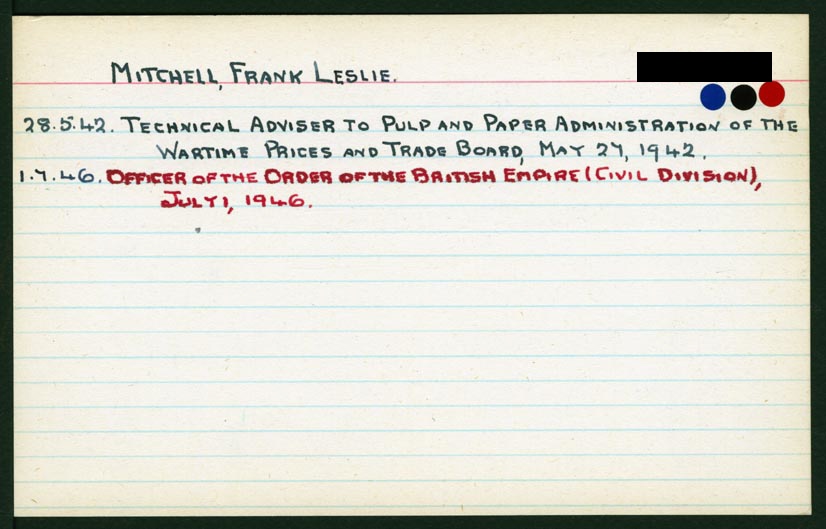 MITCHELL, FRANK LESLIE.
28.5.42. TECHNICAL ADVISER TO PULP AND PAPER ADMINISTRATION OF THE
WARTIME PRICES AND TRADE BOARD, MAY 27, 1942.
1.7.46. OFFICER OF THE ORDER OF THE BRITISH EMPIRE (CIVIL DIVISION),
JULY 1, 1946.